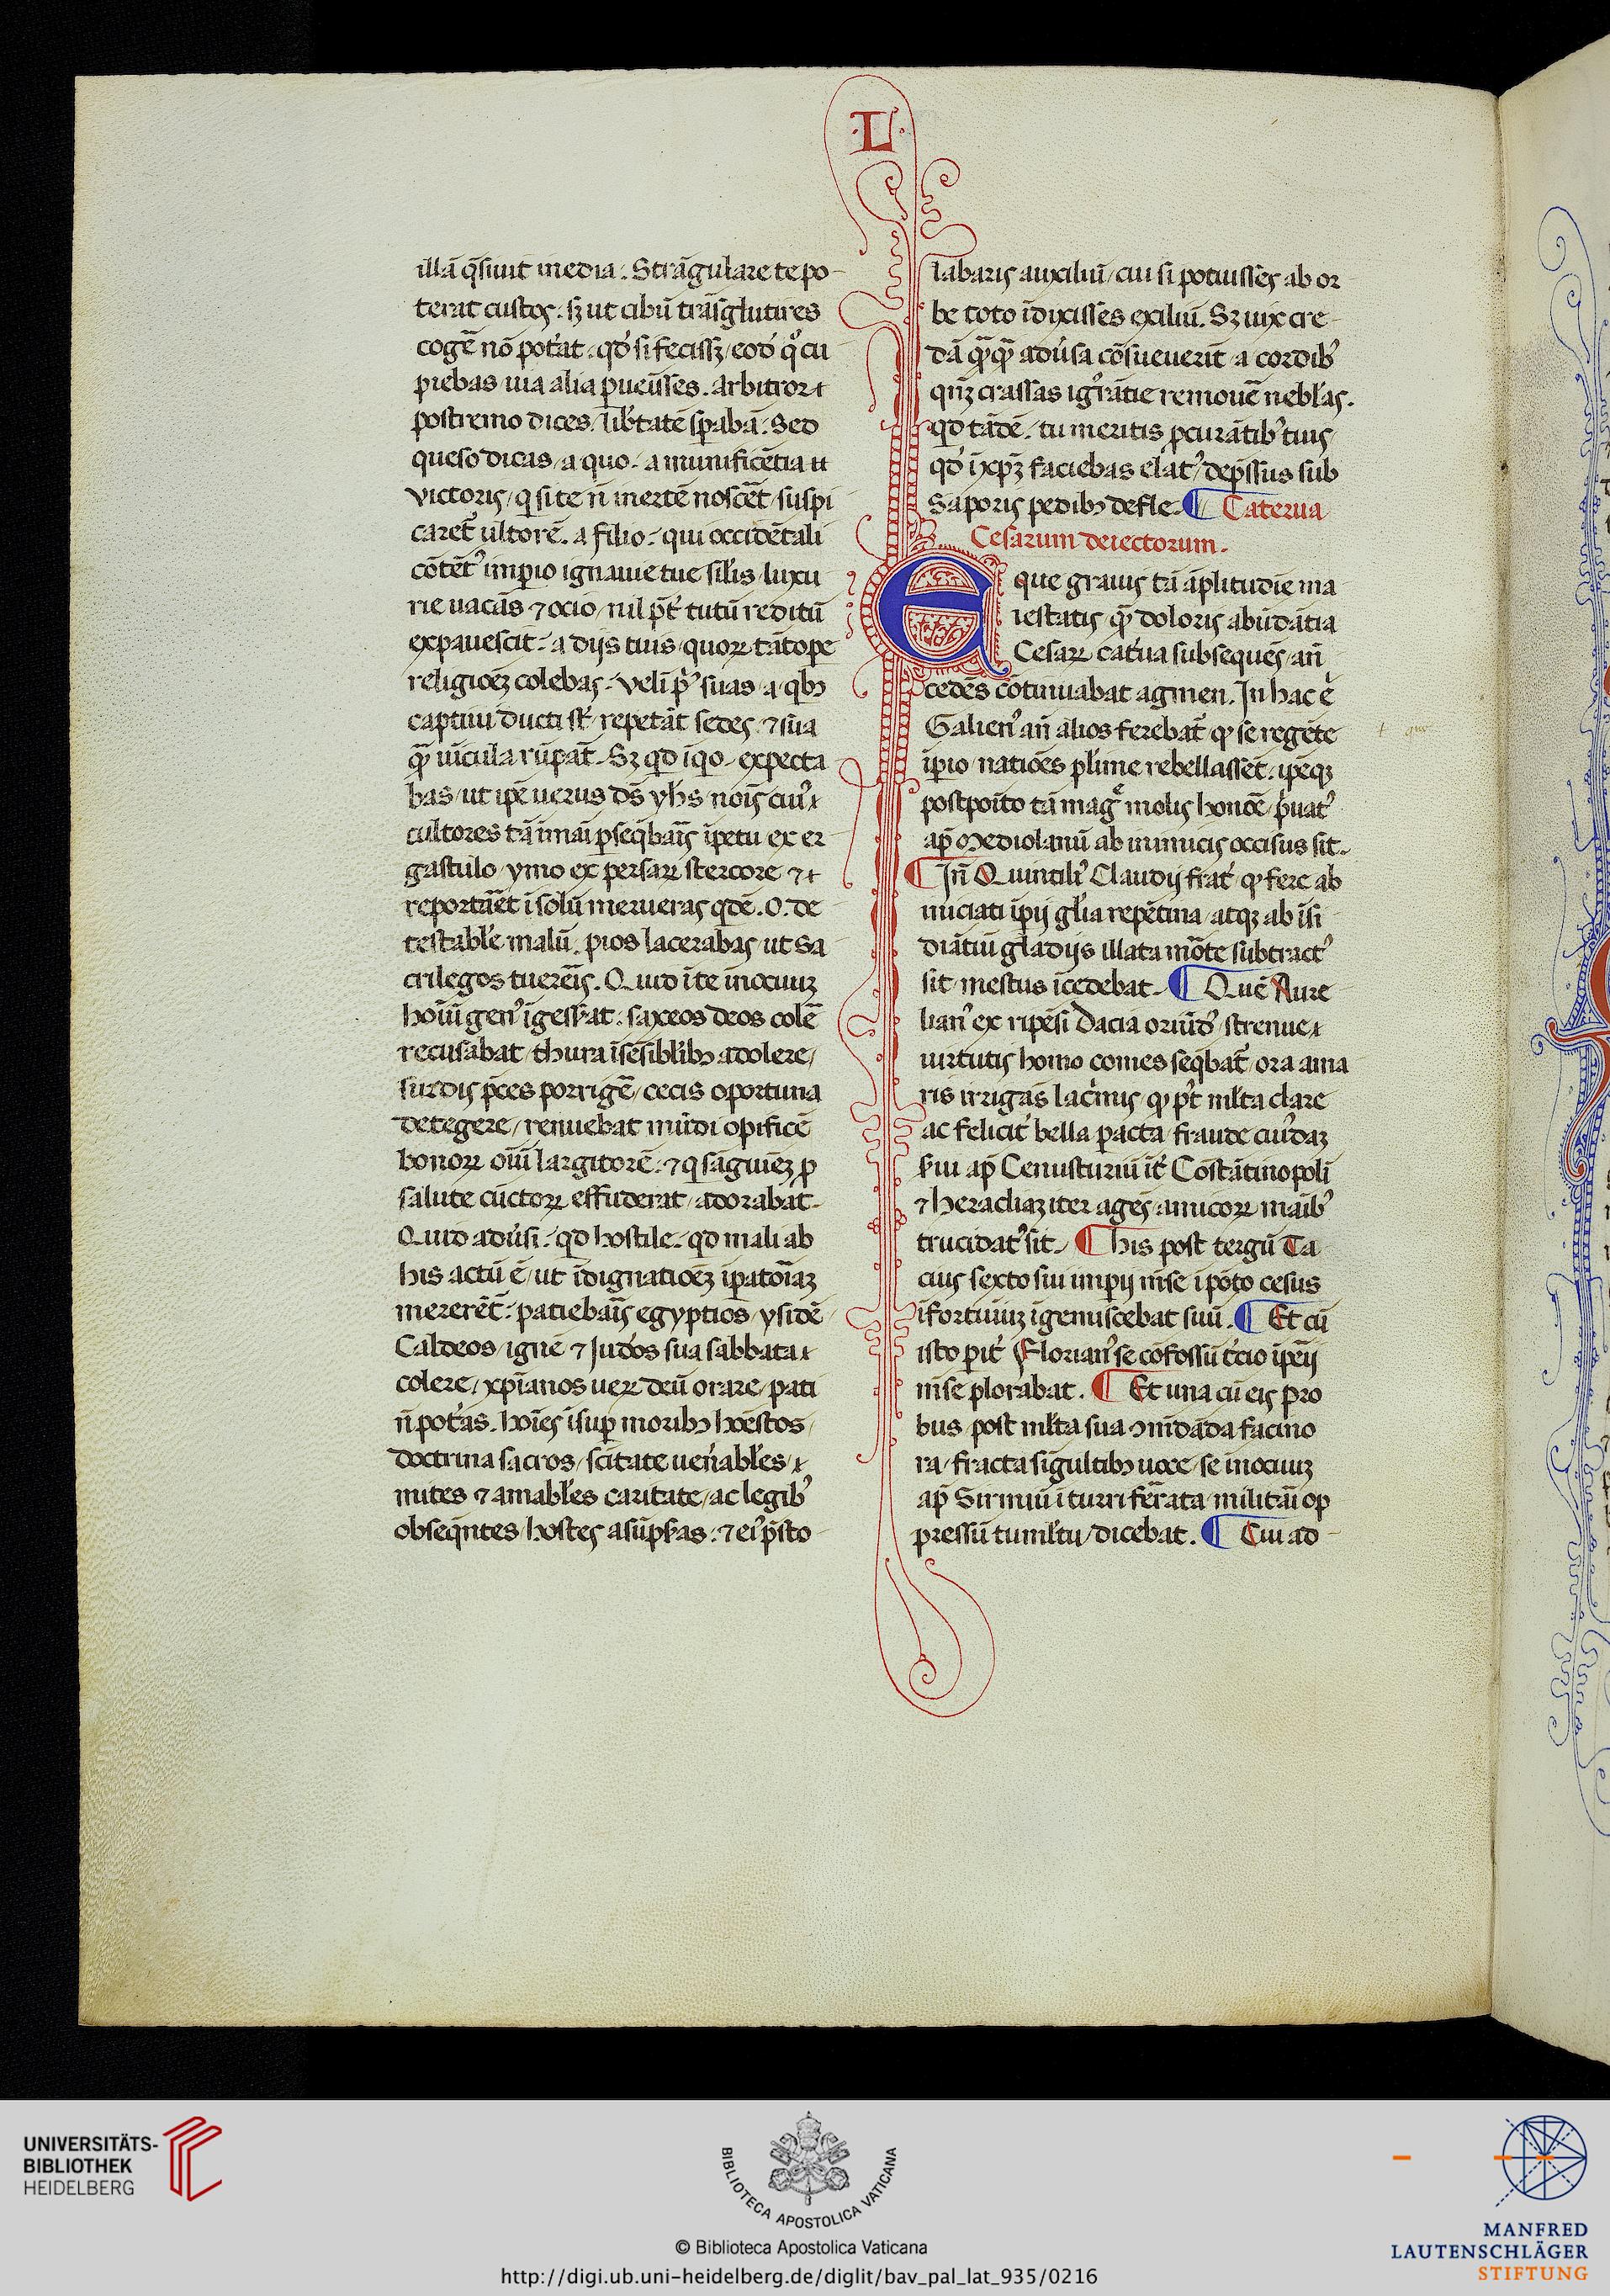 ·L·
illā q̄siuit media. Strāgulare te po
terat custos. sꝫ ut cibū trāsglutires
cogē nō pot̄at. qd̛ si fecissꝫ. eod̛ q̊ cu
piebas uia alia ꝑueīsses. Arbitror ⁊
postremo dices. lib̄tatē sꝑabā. Sed
queso dicas. a quo. a munificētia
victoris, q̢ si te n̄ inertē noscēt, suspi
caret᷑ ultorē. a filio. qui occidētali
cōtēt᷒ imꝑio ignauie tue sil̄is luxu
rie uacās ⁊ ocio, nil p̄t̄ tutū reditū
expauescit. a dijs tuis, quoꝝ tātope
religioēꝫ colebas. Velī pr᷒ suas, a qbꝫ
captiui ducti st̄, repetāt sedes, ⁊ sua
q̄ uīcula rūpāt. Sꝫ qd iqo. expecta
bas, ut ip̄e uerus d̄s yh̄s, nois̄ cui᷒
cultores tā īmai ꝑseq̄bais̄ īpetu ex er
gastulo ymo ex persaꝝ stercore ⁊
reportaēt i solū merueras qdē. O. de
testabl̄e malū. pios lacerabas ut sa
crilegos tuereis̄. Quid i te inocuuꝫ
hoīū gen᷒ īgess̄at. saxeos deos colē
recusabat, thura īsēsibl̄ibꝫ adolere,
surdis p̄ces porrigē, cecis oportuna
detegere, renuebat mūdi opificē
bonoꝝ oīū largitorē. ⁊ q̢ sāguiēꝫ ꝓ
salute cūctoꝝ effuderat, adorabat.
Quid adūsi. qd hostile. qd mali ab
his actū ē, ut īdignatioēꝫ īpatoīaꝫ
mererēt᷑. patiebais̄ egyptios, ysidē
Caldeos, ignē ⁊ Iudos sua sabbata ⁊
colere, xp̄ianos ueꝝ deū orare, pati
n̄ pot̄as. hoīēs īsuꝑ moribꝫ hoēstos,
doctrina sacros, scītate uen̄abl̄es, ⁊
mites ⁊ amabl̄es caritate, ac legib᷒
obseqntes, hostes asūpsas. ⁊ ei᷒ p̄sto
labaris auxiliū, cui si potuissēs ab or
be toto īdixissēs exiliū. Sꝫ uix cre
dā q̄q̄ adūsa cōsueuerit, a cordib᷒
qn̄ꝫ crassas ig᷒rātie remouē nebl̄as.
qd tādē. tu meritis ꝓcurātib᷒ tuis,
qd̛ ī xp̄ꝫ faciebas elat᷒, dep̄ssus sub
Saporis pedibꝫ defle. ¶ Caterua
Cesarum deiectorum.
Eque grauis tā āplitudīe ma
iestatis q̄ doloris abūdātia
Cesaꝝ cat̄ua subsequēs, an̄
cedēs cōtinuabat agmen. In hac ē
Galien᷒ an̄ alios ferebat᷑ ꝙ se regēte
īꝑio, natioēs pl̄ime rebellassēt. ip̄eqꝫ
postpoīto tā magͤ molis honoē, p̄uat᷒
ap̄ Mediolanū ab inimicis occisus sit.
¶ In̄ Quintili᷒ Claudij frat̄ ꝙ fere ab
nuciati īpij gl̄ia repētina, atqꝫ ab īsi
diātiū gladijs illata mōte subtract᷒
sit, mestus īcedebat. ¶ Quē Aure
lian᷒ ex ripēsi Dacia oriūd᷒, strenue ⁊
uirtutis homo comes seqbat᷑, ora ama
ris irrigās lac̄mis, ꝙ p̄t ml̄ta clare
ac felicit̄ bella ꝑacta, fraude cui᷒daꝫ
s̄ui ap̄ Cenusturiū it̄ Cōstātinopolī
⁊ Heracliaꝫ iter agēs, amicoꝝ maīb᷒
trucidat᷒ sit. ¶ His post tergū Ta
cius sexto sui impij mīse i pōto cesus
īfortuīuꝫ īgemiscebat suū. ¶ Et cū
isto parit̄ Florian᷒ se cōfossū t̄cio īpeīj
mīse plorabat. ¶ Et una cū eis Pro
bus, post ml̄ta sua ꝯmēdāda facino
ra, fracta sīgultibꝫ uoce, se inocuuꝫ
ap̄ Sirmiū i turri fer̄ata, militāi op
pressū tumltu, dicebat. ¶ Cui ad
UNIVERSITÄTS-
BIBLIOTHEK
HEIDELBERG
BIBLIOTECA APOSTOLICA VATICANA
© Biblioteca Apostolica Vaticana
http://digi.ub.uni-heidelberg.de/diglit/bav_pal_lat_935/0216
MANFRED
LAUTENSCHLÄGER
STIFTUNG